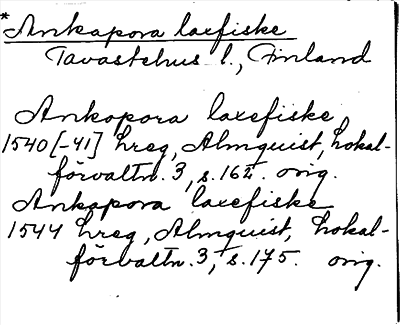 *Ankapora laxfiske
Tavastehus l., Finland
Ankopora laxefiske
1540[-41] hreg, Almquist, Lokal-
förvaltn. 3, s. 162. orig.
Ankapora laxefiske
1544 hreg, Almquist, Lokal-
förvaltn. 3, s. 175. orig.